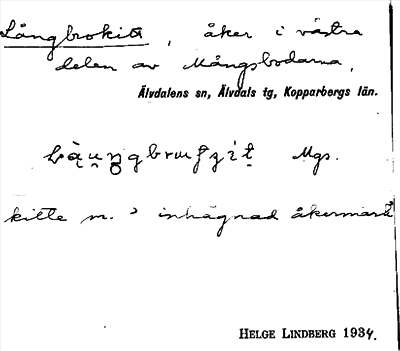 Långbrokitt, åker i västra
delen av Mångsbodarna,
Älvdalens sn, Älvdals tg, Kopparbergs län.
Mgs.
kitte m. = inhägnad åkermark
HELGE LINDBERG 1934.